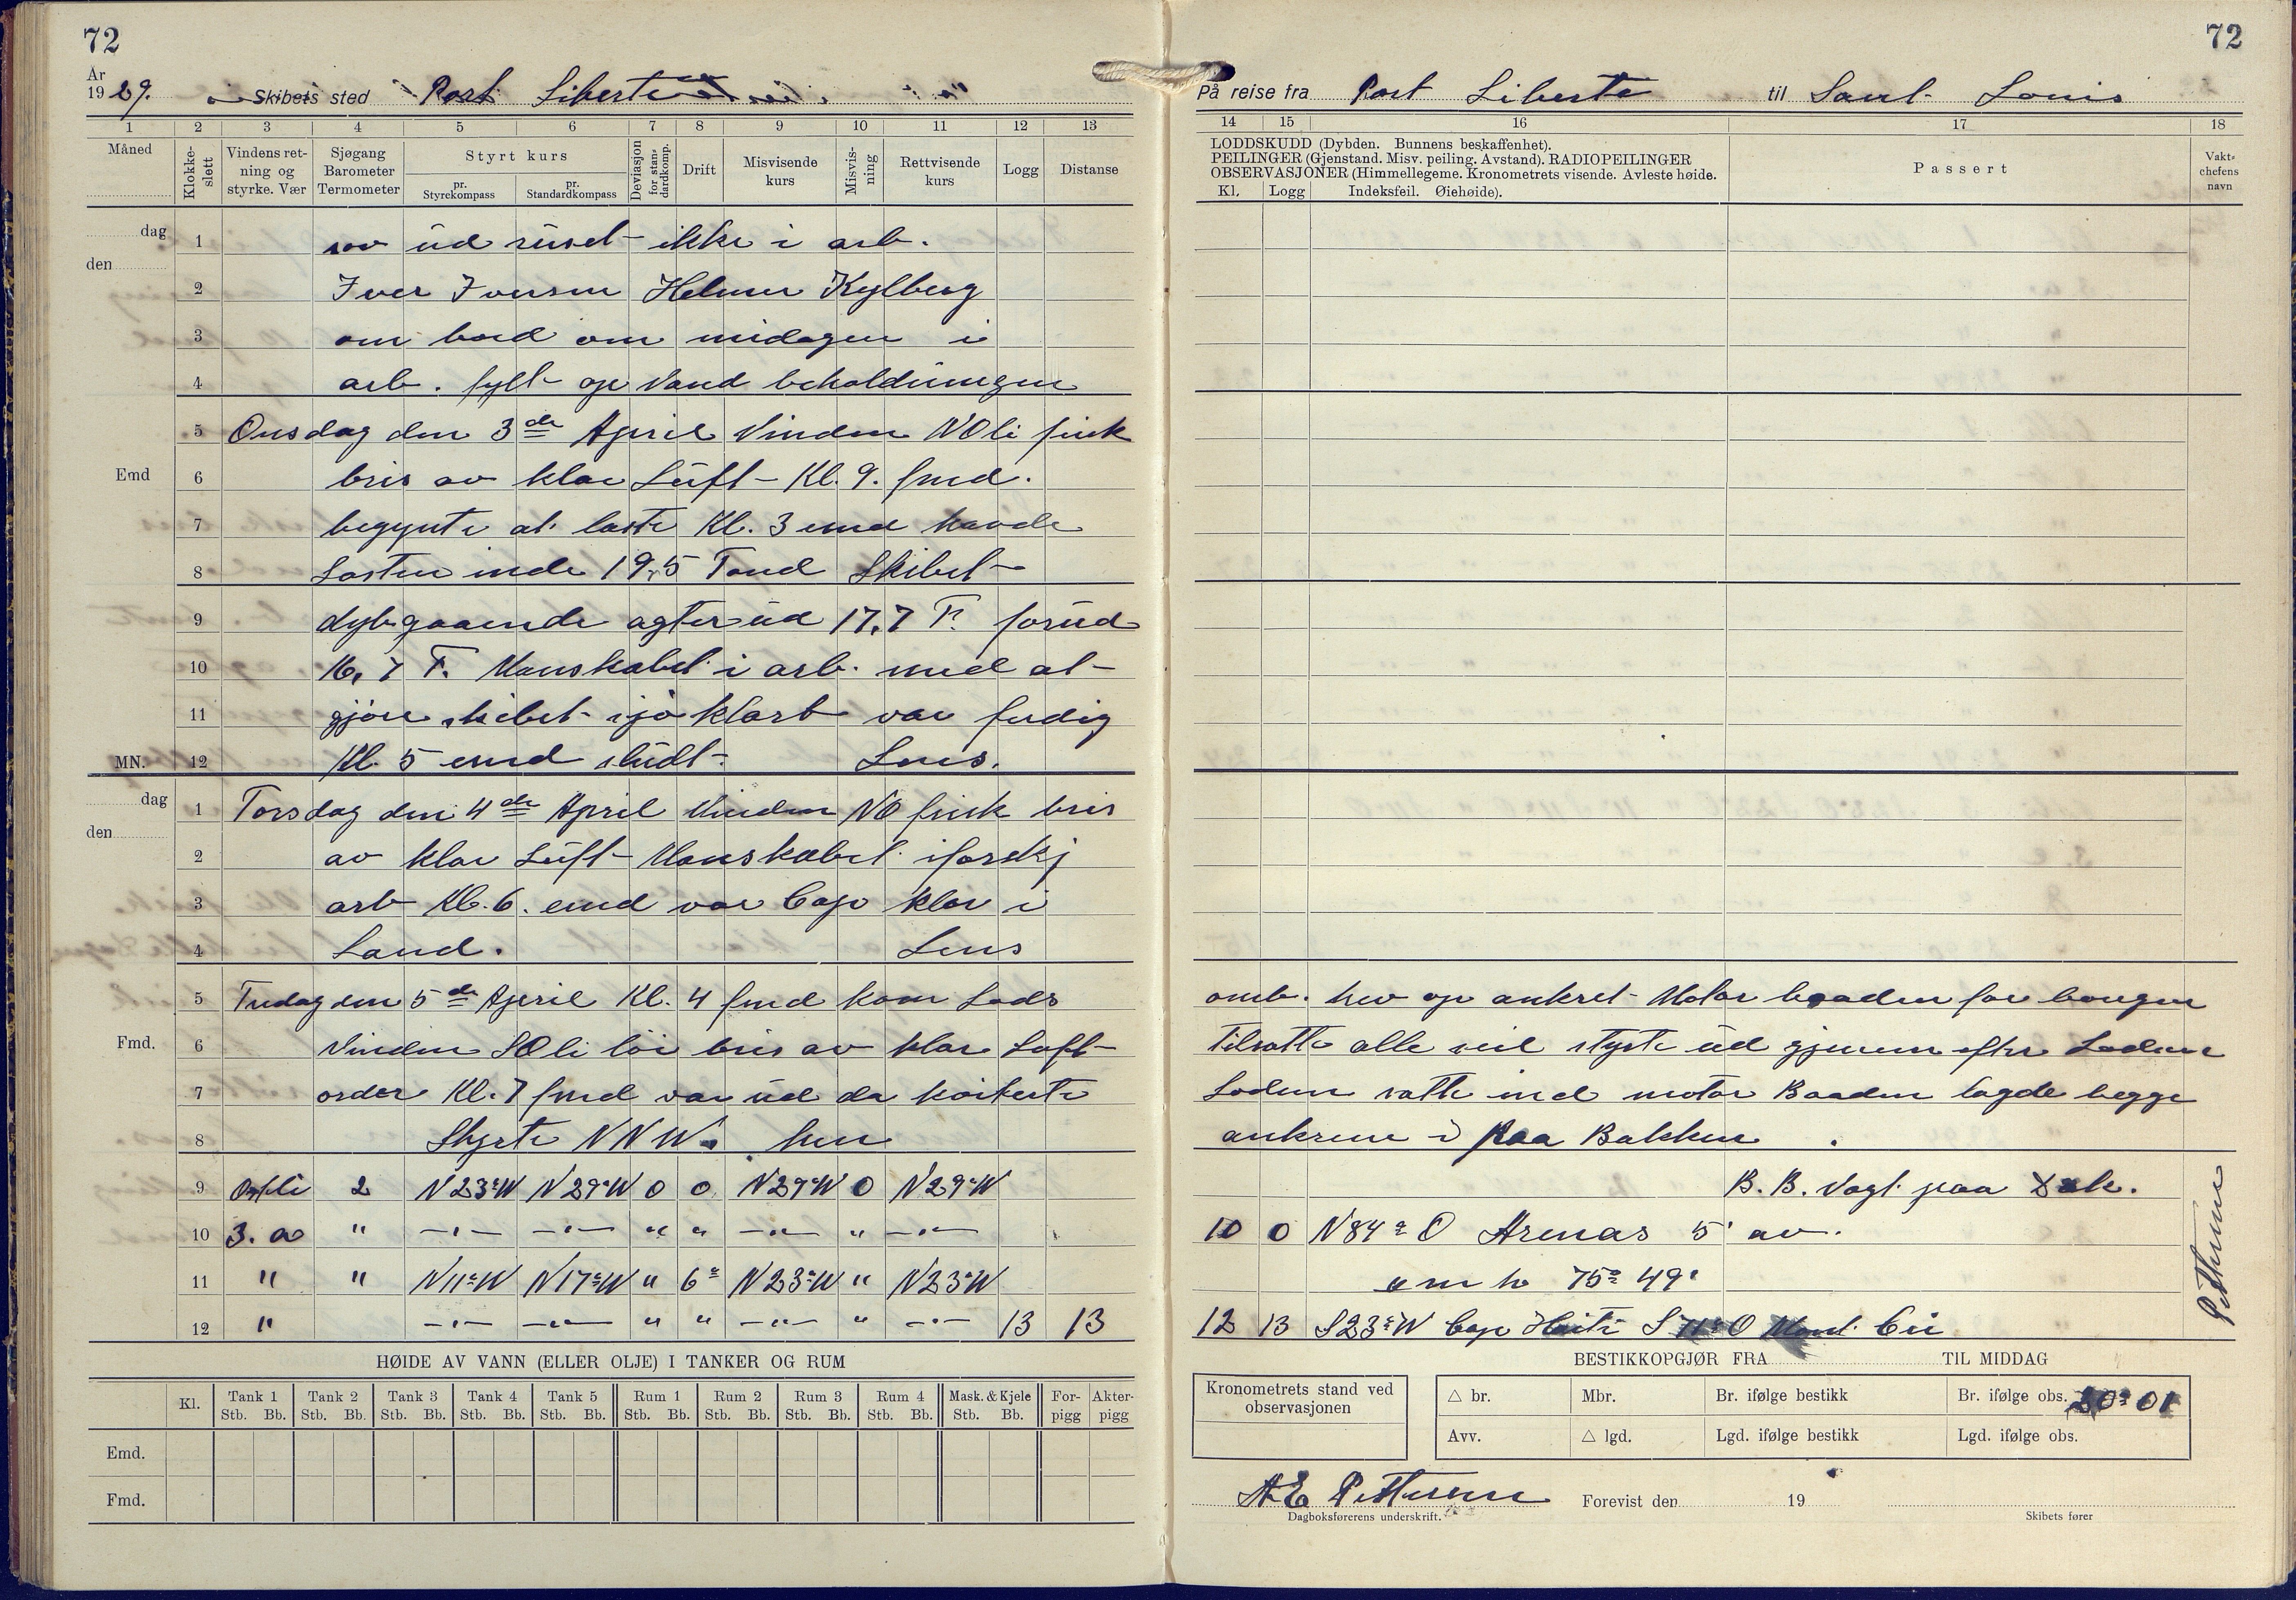 72
År
1929. Skibets sted Port Liberte
1 2 3 4 5 6 7 8 9 10 11 12 13
Måned
Klokke-
slett
Vindens ret-
ning og
styrke. Vær
Sjøgang
Barometer
Termometer
Styrt kurs
pr.
Styrekompass
pr.
Standardkompass
Deviasjon
for stan-
dardkomp.
Drift
Misvisende
kurs
Misvis-
ning
Rettvisende
kurs
Logg
Distanse
dag 1 sov ud ruset ikke i arb.
den
2 Iver Iversen Helmer Kylberg
3 om bord om midagen i
4 arb. fylt op Vand beholdningen
5 Onsdag den 3de April Vinden NOli frisk
Emd 6 bris av klar Luft Kl. 9. fmd.
7 begynte at laste Kl. 3 emd havde
8 Lasten inde 195 Tond Skibet
9 dybgaaende agterud 17,7 F. forud
10 16,7 F. Manskabet i arb. med at
11 gjøre skibet sjøklart var ferdig
MN. 12 Kl. 5 emd sludt. Lens.
dag 1 Torsdag den 4de April Vinden NO frisk bris
den
2 av klar Luft Manskabet i forskj
3 arb Kl. 6. emd var Capt klar i
4 Land. Lens
5 Fredag den 5de April Kl. 4 fmd kom Lods
Fmd. 6 Vinden SOli løi bris av klar Luft
7 order Kl. 7 fmd var ud da
8 Styrte NNW. hen
9 Ostli 2 N23°W N29°W 0 0 N29°W 0 N29°W
10 3. a " —"— —"— " " —"— " —"—
11 " " N11°W N17°W " 6° N23°W " N23°W
12 " —"— —"— " " —"— " —"— 13 13
HØIDE AV VANN (ELLER OLJE) I TANKER OG RUM
Kl. Tank 1 Tank 2 Tank 3 Tank 4 Tank 5 Rum 1 Rum 2 Rum 3 Rum 4 Mask. & Kjele For- Akter-
Stb. Bb. Stb. Bb. Stb. Bb. Stb. Bb. Stb. Bb. Stb. Bb. Stb. Bb. Stb. Bb. Stb. Bb. Stb. Bb. pigg pigg
Emd.
Fmd.
72
På reise fra Port Liberte til Sant Louis
14 15 16 17 18
LODDSKUDD (Dybden. Bunnens beskaffenhet).
PEILINGER (Gjenstand. Misv. peiling. Avstand). RADIOPEILINGER
OBSERVASJONER (Himmellegeme. Kronometrets visende. Avleste høide.
Kl. Logg Indeksfeil. Øiehøide).
Passert
Vakt-
chefens
navn
omb. hev op ankret Motor baaden for bougen
Tilsatte alle seil styrte ud gjennem efter Lodsens
Lodsen satte ind motor Baaden lagde begge
ankrene i paa Bakken.
B. B. Vagt paa Dæk.
10 0 N84° O Arenas 5' av.
75° 49'
12 13 S23°W Cap Haiti O
Pettersen
BESTIKKOPGJØR FRA TIL MIDDAG
Kronometrets stand ved
observasjonen
△ br. Mbr. Br. ifølge bestikk Br. ifølge obs. 20° 01
Avv. △ lgd. Lgd. ifølge bestikk Lgd. ifølge obs.
A E Pettersen Forevist den 19
Dagboksførerens underskrift. Skibets fører